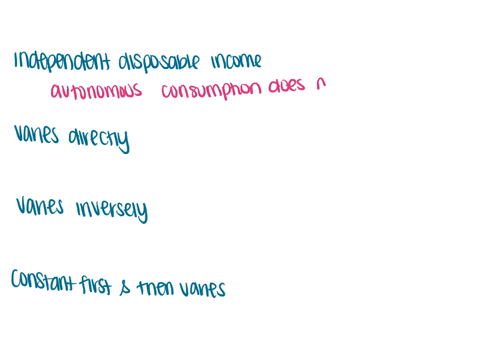 independent disposable income
autonomous consumption does n
varies directly
varies inversely
constant first & then varies